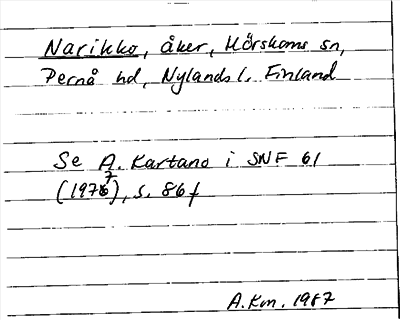 Narikko, åker, Mörskoms sn,
Pernå hd, Nylands l, Finland
Se A. Kartano i SNF 61
(1977), s. 86 f
A.Km. 1987